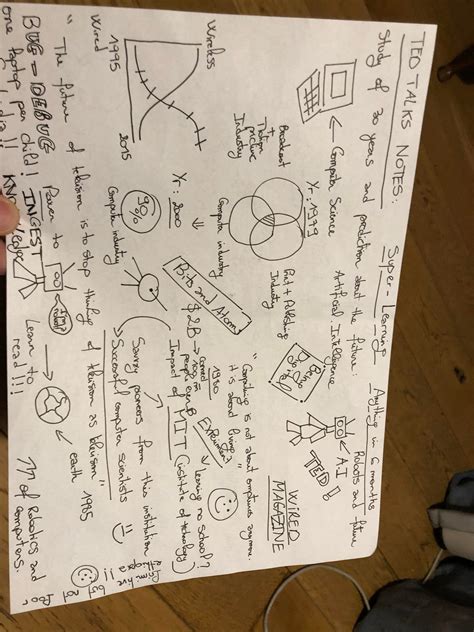 TED TALKS NOTES:
Super-Learning Anything in 6 months
Study of 30 years and prediction about the future.
Computer Science
Artificial Intelligence
A.I
Robots and future
TED!
WIRED
MAGAZINE
Wireless
Wired
1995
2015
Broadcast
+
picture
Industry
Yr: 1979
Print + Publishing
Industry
Computer industry
Yr: 2000
90%
Computer industry
Bits and Atoms
$2B
connect
people
1980
"Computing is not about computers anymore.
it is about living"
Experiment
learning no school?
Impact of MIT (institute of technology)
Savvy pioneers from this institution
Successful computer scientists
"The future of television is to stop thinking of television as television" 1985
earth
BUG - DEBUG
Power to
one laptop per child!
INGEST
KNOWledge
I'm a
robot!
Learn to
read!!!
of Robotics and
computers.